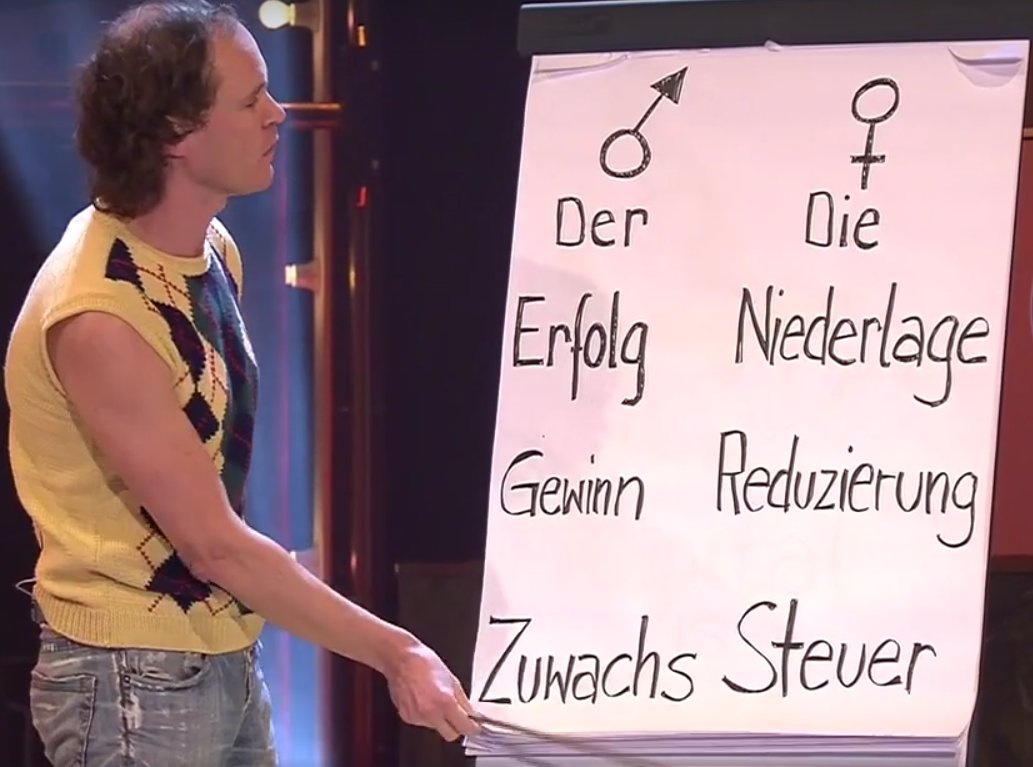 Der Die
Erfolg Niederlage
Gewinn Reduzierung
Zuwachs Steuer